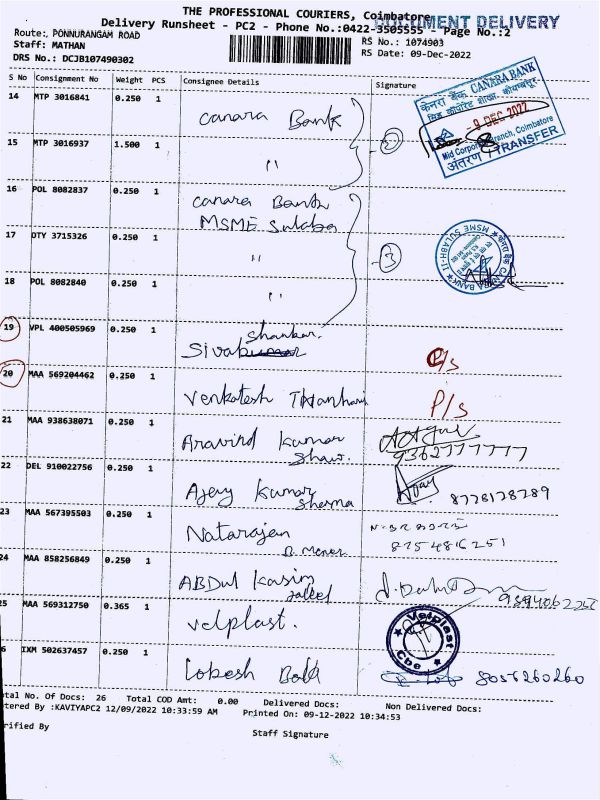 THE PROFESSIONAL COURIERS, Coimbatore
DOCUMENT DELIVERY
Delivery Runsheet - PC2 - Phone No.:0422-3505555 - Page No.:2
Route: PONNURANGAM ROAD
RS No.: 1074903
Staff: MATHAN
RS Date: 09-Dec-2022
DRS No.: DCJB107490302
S No Consignment No Weight PCS Consignee Details Signature
14 MTP 3016841 0.250 1 Canara Bank
केनरा बैंक CANARA BANK
- 9 DEC 2022
Mid Corporate Branch, Coimbatore
अंतरण / TRANSFER
15 MTP 3016937 1.500 1 " 2
16 POL 8082837 0.250 1 Canara Bank
MSME Sulaba
17 DTY 3715326 0.250 1 " 3
CANARA BANK MSME SULABH-II
18 POL 8082840 0.250 1 "
19 VPL 400505969 0.250 1 Shankar.
Siva
20 MAA 569204462 0.250 1 Venkatesh P/s
21 MAA 938638071 0.250 1 Aravind Kumar
Shaw. 9362777777
22 DEL 910022756 0.250 1 Ajay Kumar
Sharma 8778178289
23 MAA 567395503 0.250 1 Natarajan
R. Menon 8754816251
24 MAA 858256849 0.250 1 ABDUL Kasim
Jaleel
25 MAA 569312750 0.365 1 Velplast.
Velplast Cbe
6 IXM 502637457 0.250 1 Lobesh 8056260260
otal No. Of Docs: 26 Total COD Amt: 0.00 Delivered Docs: Non Delivered Docs:
tered By :KAVIYAPC2 12/09/2022 10:33:59 AM Printed On: 09-12-2022 10:34:53
rified By Staff Signature